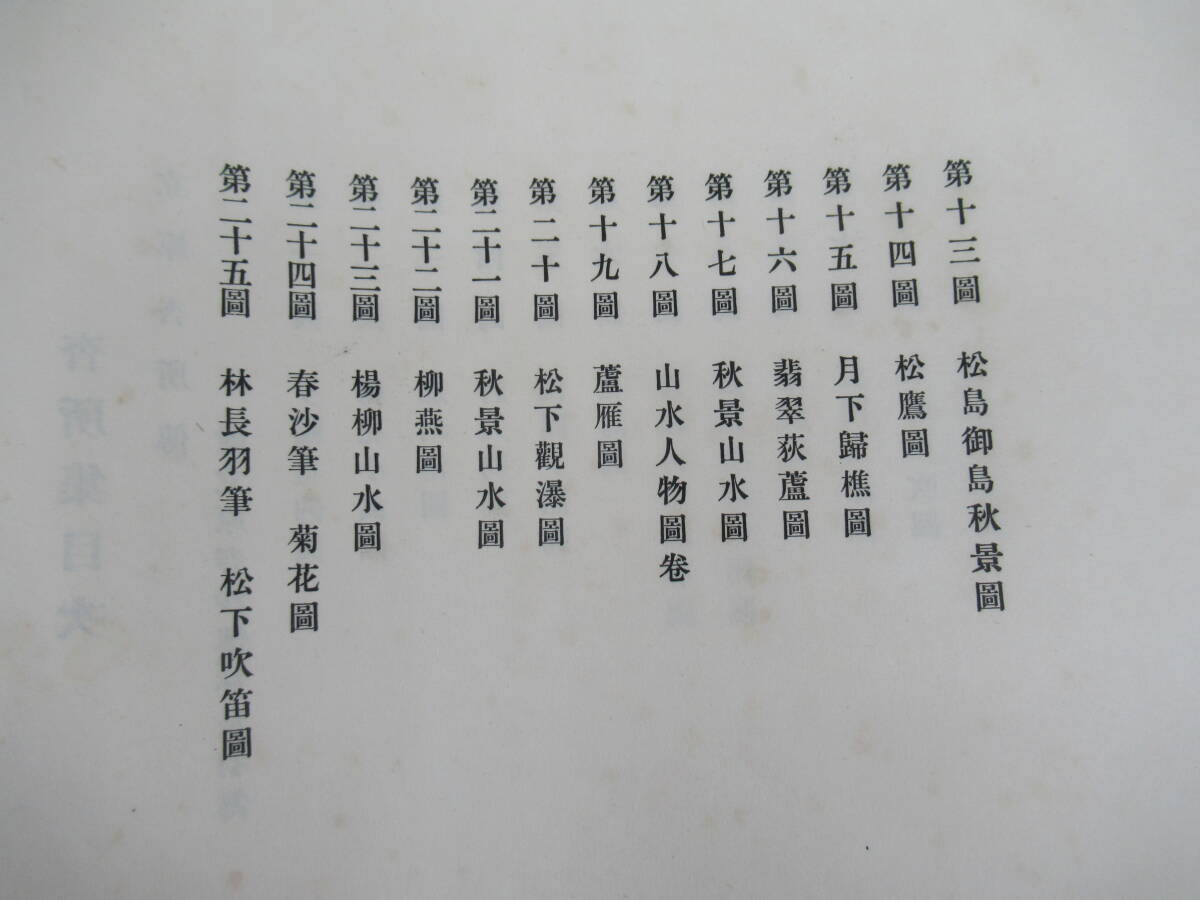 第十三圖 松島御島秋景圖
第十四圖 松鷹圖
第十五圖 月下歸樵圖
第十六圖 翡翠荻蘆圖
第十七圖 秋景山水圖
第十八圖 山水人物圖卷
第十九圖 蘆雁圖
第二十圖 松下觀瀑圖
第二十一圖 秋景山水圖
第二十二圖 柳燕圖
第二十三圖 楊柳山水圖
第二十四圖 春沙筆 菊花圖
第二十五圖 林長羽筆 松下吹笛圖
杏所集目次